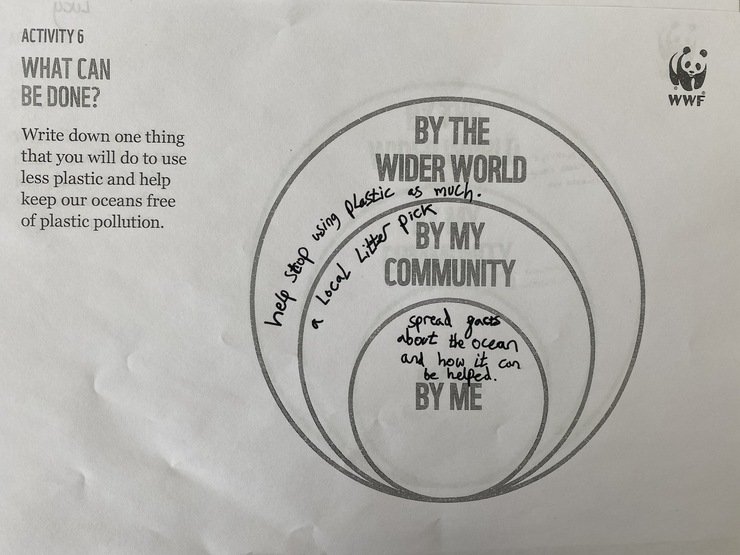 ACTIVITY 6
WHAT CAN
BE DONE?
Write down one thing
that you will do to use
less plastic and help
keep our oceans free
of plastic pollution.
WWF
BY THE
WIDER WORLD
help stop using plastic as much.
a Local Litter pick
BY MY
COMMUNITY
spread facts
about the ocean
and how it can
be helped.
BY ME
Lucy